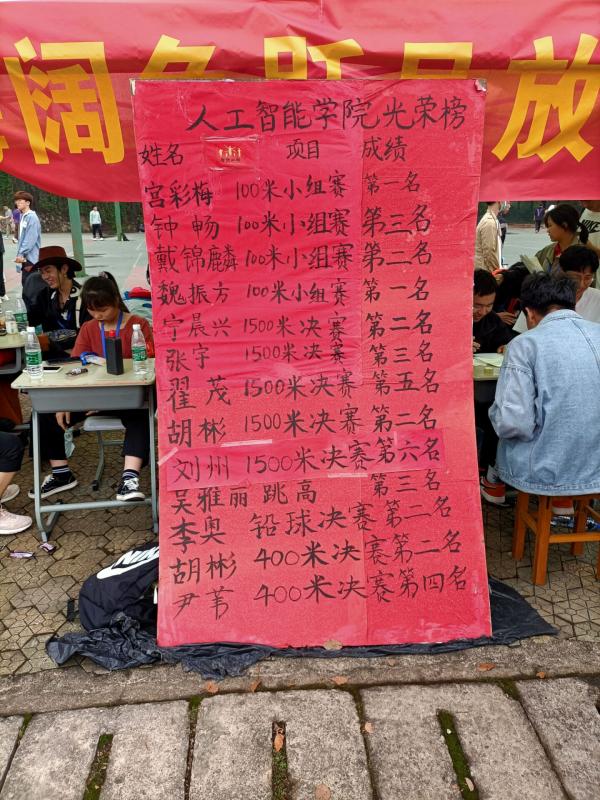 阔鱼跃 凡放
人工智能学院光荣榜
姓名 项目 成绩
宫彩梅 100米小组赛 第一名
钟畅 100米小组赛 第三名
戴锦麟 100米小组赛 第二名
魏振方 100米小组赛 第一名
宁晨兴 1500米决赛 第二名
张宇 1500米决赛 第三名
翟茂 1500米决赛 第五名
胡彬 1500米决赛 第二名
刘州 1500米决赛 第六名
吴雅丽 跳高 第三名
李奥 铅球决赛 第二名
胡彬 400米决赛 第二名
尹苇 400米决赛 第四名
NIKE